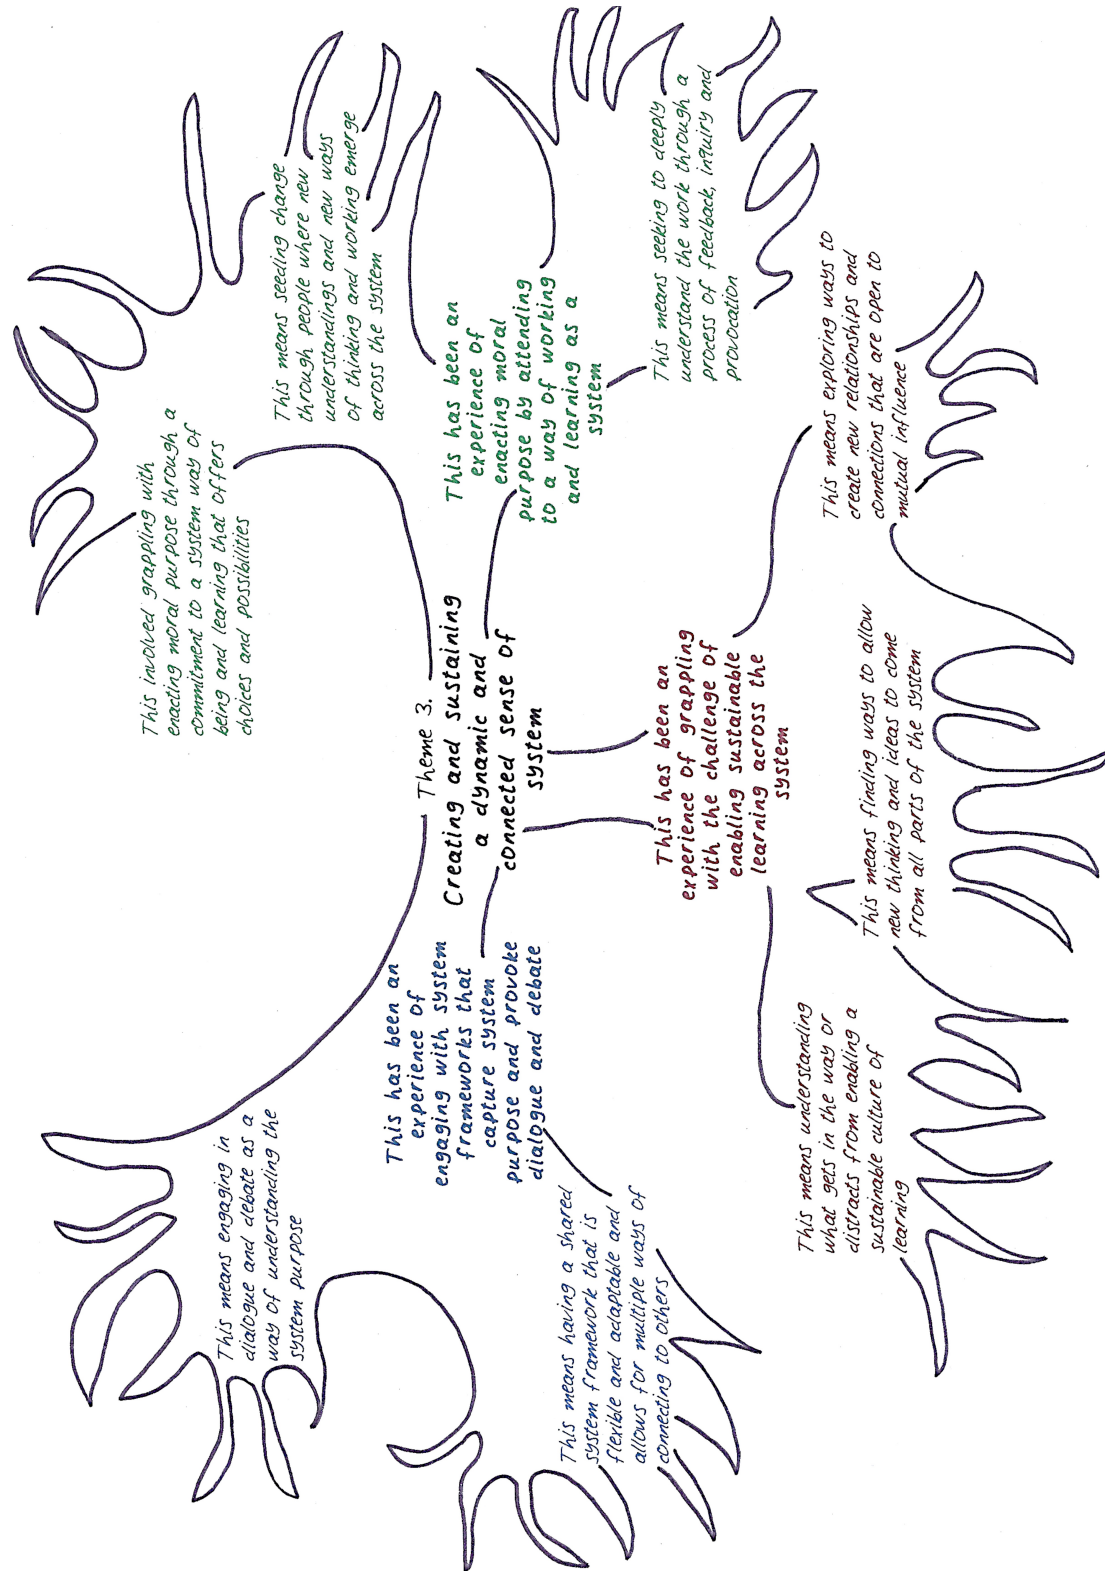 Theme 3.
Creating and sustaining
a dynamic and
connected sense of
system
This has been an
experience of
engaging with system
frameworks that
capture system
purpose and provoke
dialogue and debate
This means engaging in
dialogue and debate as a
way of understanding the
system purpose
This means having a shared
system framework that is
flexible and adaptable and
allows for multiple ways of
connecting to others
This has been an
experience of
enacting moral
purpose by attending
to a way of working
and learning as a
system
This involved grappling with
enacting moral purpose through a
commitment to a system way of
being and learning that offers
choices and possibilities
This means seeding change
through people where new
understandings and new ways
of thinking and working emerge
across the system
This means seeking to deeply
understand the work through a
process of feedback, inquiry and
provocation
This has been an
experience of grappling
with the challenge of
enabling sustainable
learning across the
system
This means understanding
what gets in the way or
distracts from enabling a
sustainable culture of
learning
This means finding ways to allow
new thinking and ideas to come
from all parts of the system
This means exploring ways to
create new relationships and
connections that are open to
mutual influence